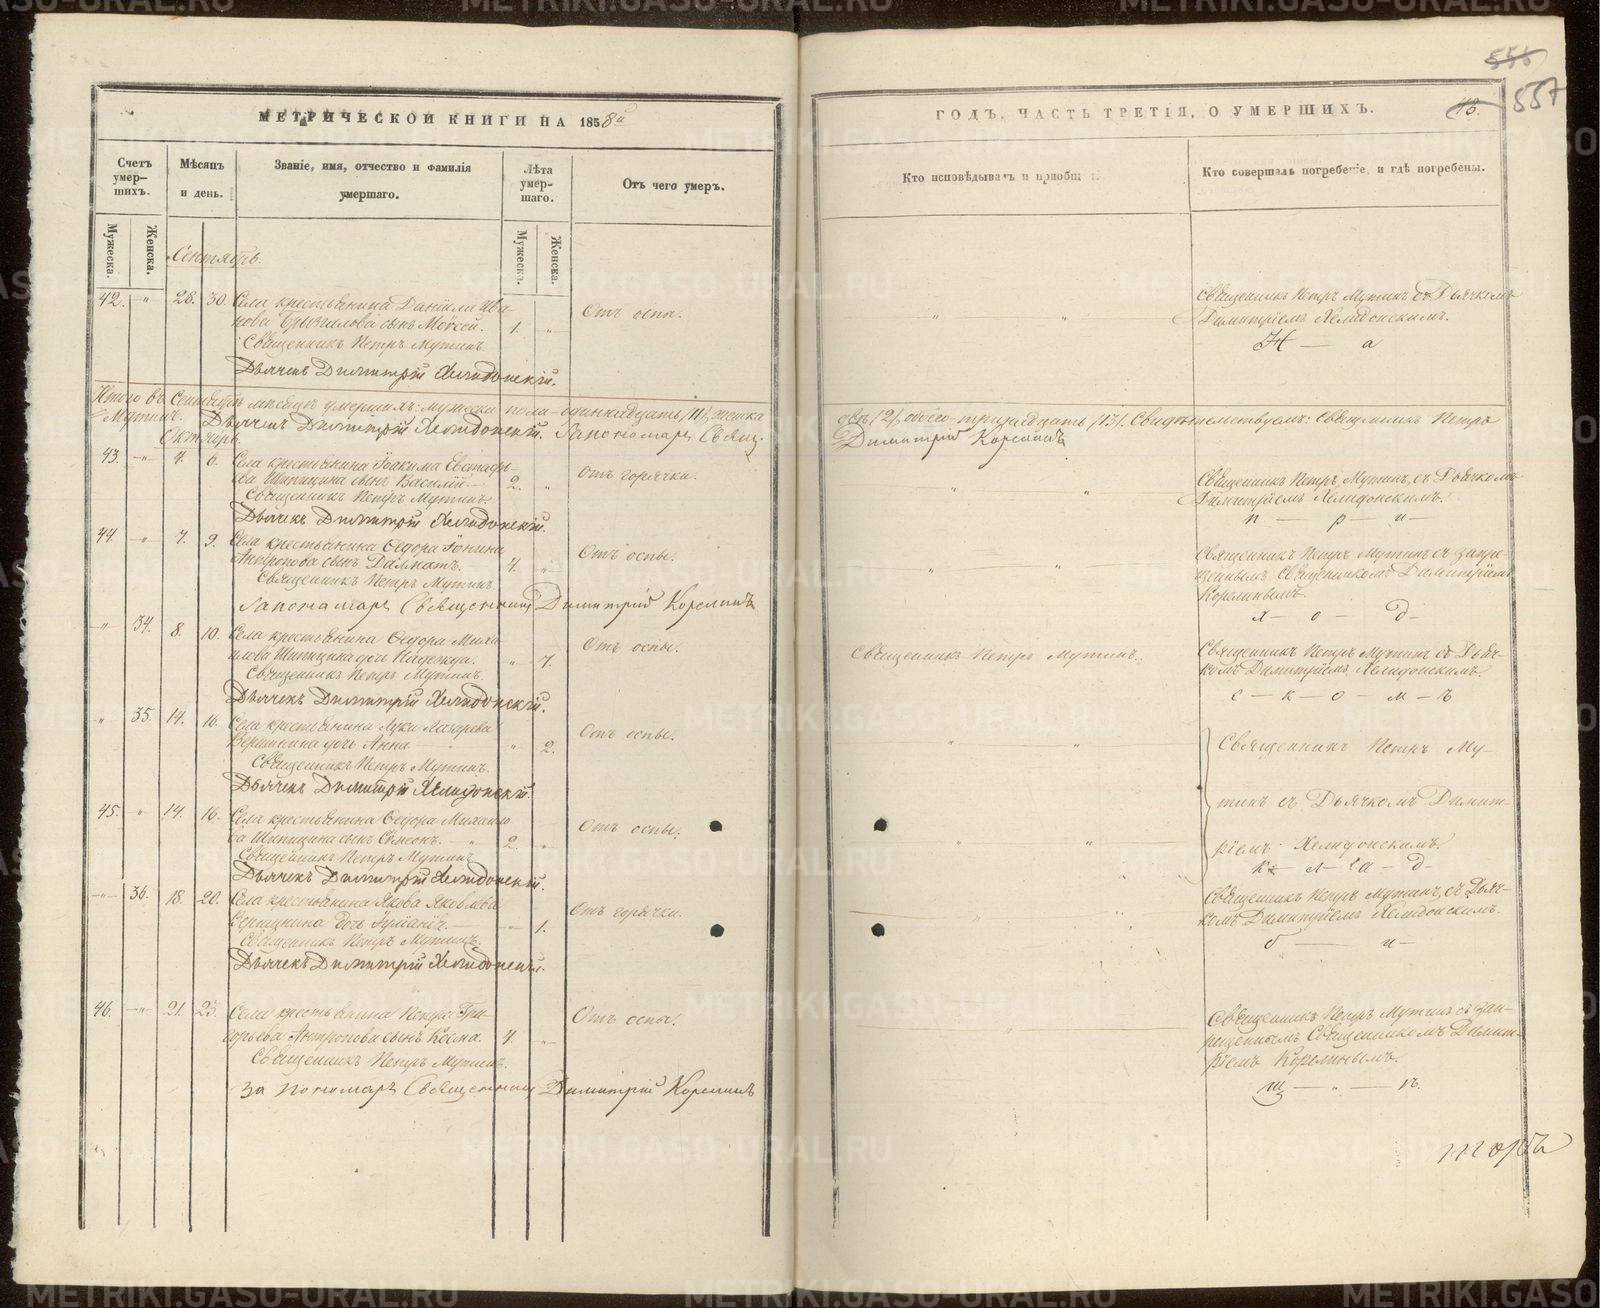 МЕТРИЧЕСКОЙ КНИГИ НА 1858й
Счетъ умер-шихъ.
Мѣсяцъ и день.
Званіе, имя, отчество и фамилія умершаго.
Лѣта умер-шаго.
Отъ чего умеръ.
Мужеска.
Женска.
Мужеска.
Женска.
Сентябрь.
42. " 28. 30. Села крестьянина Даніила Ива-
нова сынъ Моѵсей. 1. " Отъ оспы.
Священникъ Петръ Мутинъ
Дьячекъ Димитрій Хелидонскій.
Итого въ Сентябрѣ мѣсяцѣ умершихъ: мужеска пола одиннадцать /11/, женска
Мутинъ. Дьячекъ Димитрій Хелидонскій. За пономаря Свящ.
Октябрь.
43. " 4. 6. Села крестьянина Іоакима Евстафь-
ева Шипицина сынъ Василій. 2. " Отъ горячки.
Священникъ Петръ Мутинъ.
Дьячекъ Димитрій Хелидонскій.
44. " 7. 9. Села крестьянина Ѳедора Іонина
Антропова сынъ Далматъ. 4. " Отъ оспы.
Священникъ Петръ Мутинъ.
За пономаря Священникъ Димитрій Корелинъ
" 34. 8. 10. Села крестьянина Ѳедора Миха-
илова Шипицина дочь Надежда. " 7. Отъ оспы.
Священникъ Петръ Мутинъ.
Дьячекъ Димитрій Хелидонскій.
" 35. 14. 16. Села крестьянина Луки Лазарева
Вершинина дочь Анна. " 2. Отъ оспы.
Священникъ Петръ Мутинъ.
Дьячекъ Димитрій Хелидонскій.
45. " 14. 16. Села крестьянина Ѳедора Михайло-
ва Шипицина сынъ Сѵмеонъ. 2. " Отъ оспы.
Священникъ Петръ Мутинъ
Дьячекъ Димитрій Хелидонскій.
" 36. 18. 20. Села крестьянина Якова Яковлева
дочь " 1. Отъ горячки.
Священникъ Петръ Мутинъ.
Дьячекъ Димитрій Хелидонскій.
46. " 21. 23. Села крестьянина Петра Гри-
горьева Антропова сынъ Косма. 4. " Отъ оспы.
Священникъ Петръ Мутинъ.
За пономаря Священникъ Димитрій Корелинъ
556
557
ГОДЪ, ЧАСТЬ ТРЕТІЯ, О УМЕРШИХЪ. 43.
Кто исповѣдывалъ и приобщ
Кто совершалъ погребеніе, и гдѣ погребены.
Священникъ Петръ Мутинъ съ Дьячкомъ
Димитріемъ Хелидонскимъ.
Н — а
двѣ /2/, обоего тринадцать /13/. Свидѣтельствуемъ: Священникъ Петръ
Димитрій Корелинъ
Священникъ Петръ Мутинъ, съ Дьячкомъ
Димитріемъ Хелидонскимъ.
п — р — и —
Священникъ Петръ Мутинъ съ запре-
щеннымъ Священникомъ Димитріемъ
Корелинымъ.
х — о — д —
Священникъ Петръ Мутинъ.
Священникъ Петръ Мутинъ съ Дьяч-
комъ Димитріемъ Хелидонскимъ.
с — к — о — м — ъ
Священникъ Петръ Му-
тинъ съ Дьячкомъ Димит-
ріемъ Хелидонскимъ.
к — л — а — д —
Священникъ Петръ Мутинъ, съ Дьяч-
комъ Димитріемъ Хелидонскимъ.
б — и —
Священникъ Петръ Мутинъ съ зап-
рещеннымъ Священникомъ Димит-
ріемъ Корелинымъ.
щ — " — ѣ.
METRIKI.GASO-URAL.RU